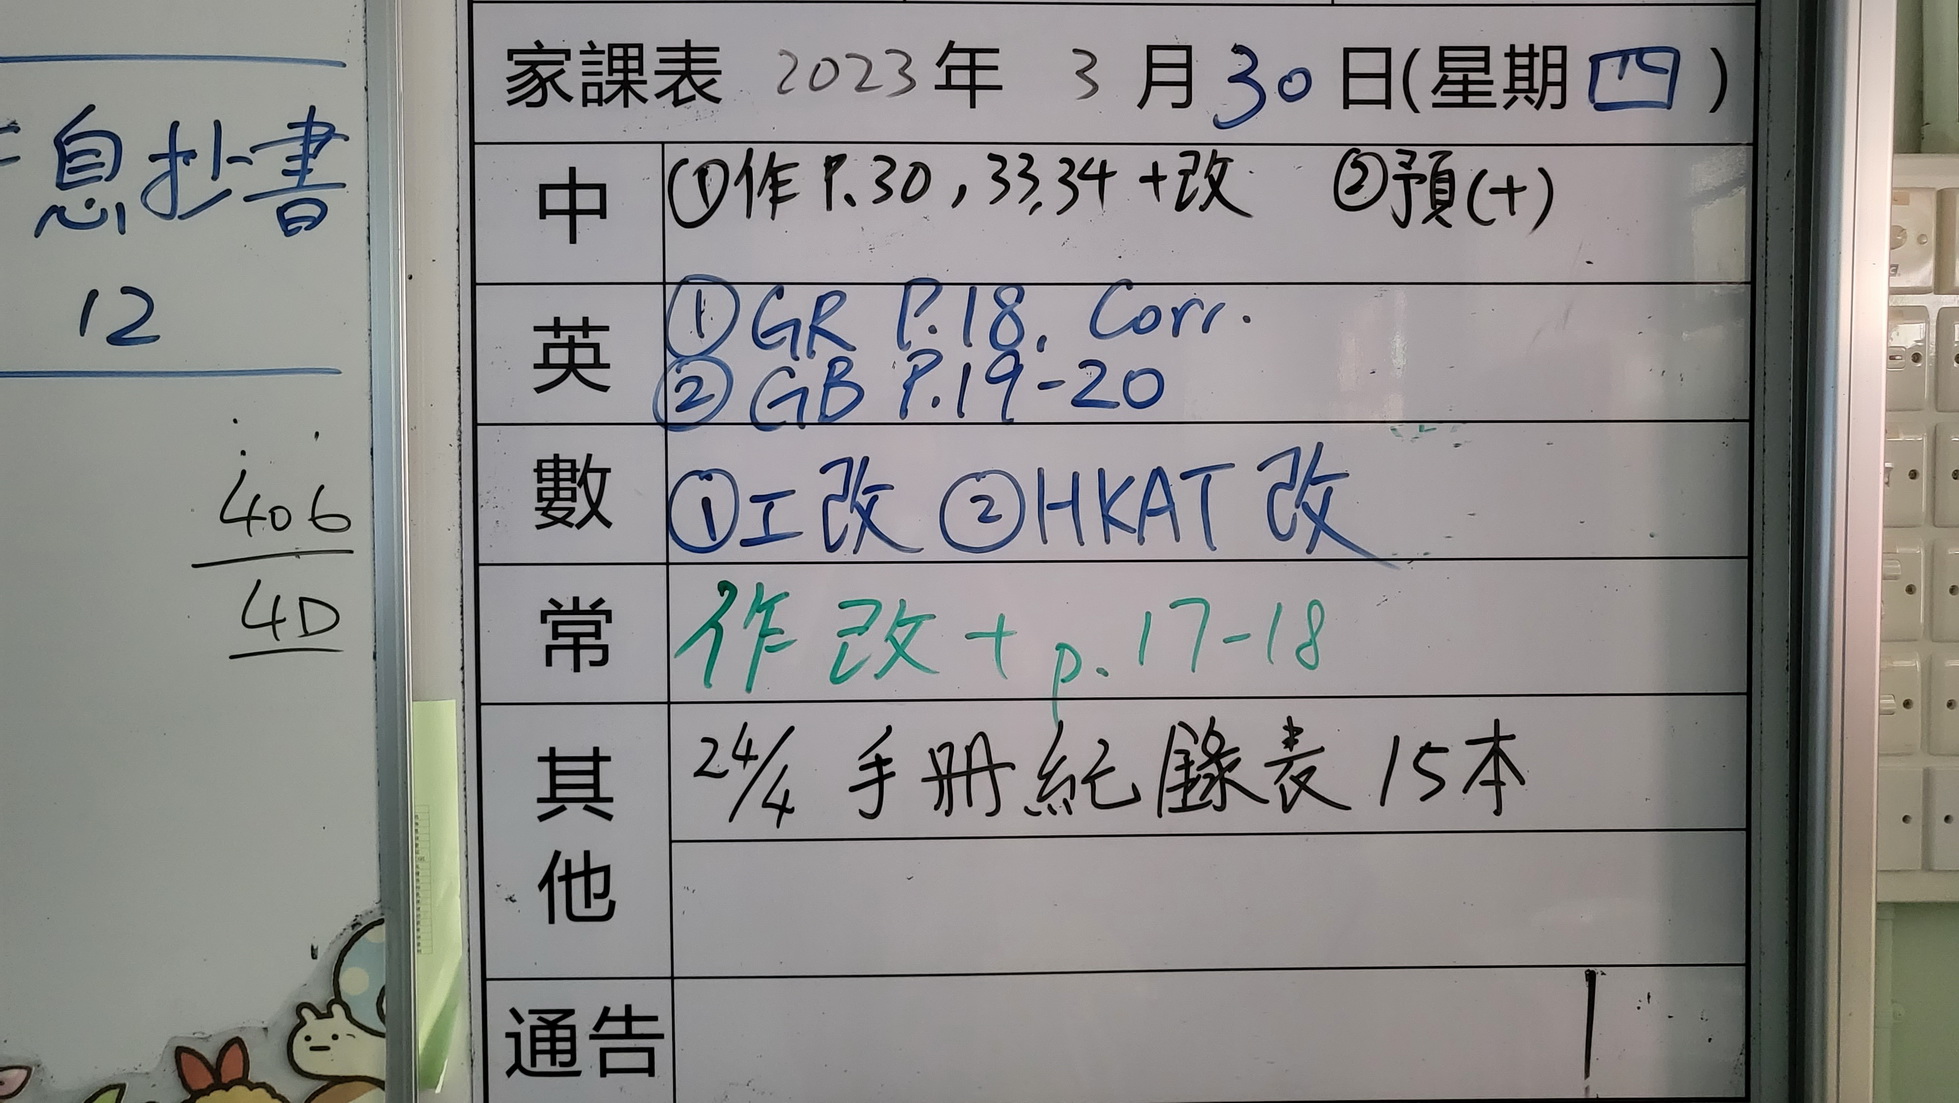 息抄書
12
406
4D
家課表 2023年 3月30日(星期四)
中 ①作 P.30,33,34+改 ②預(+)
英 ①GR P.18. Corr.
②GB P.19-20
數 ①工改 ②HKAT改
常 作改+p.17-18
其他 24/4 手冊紀錄表 15本
通告